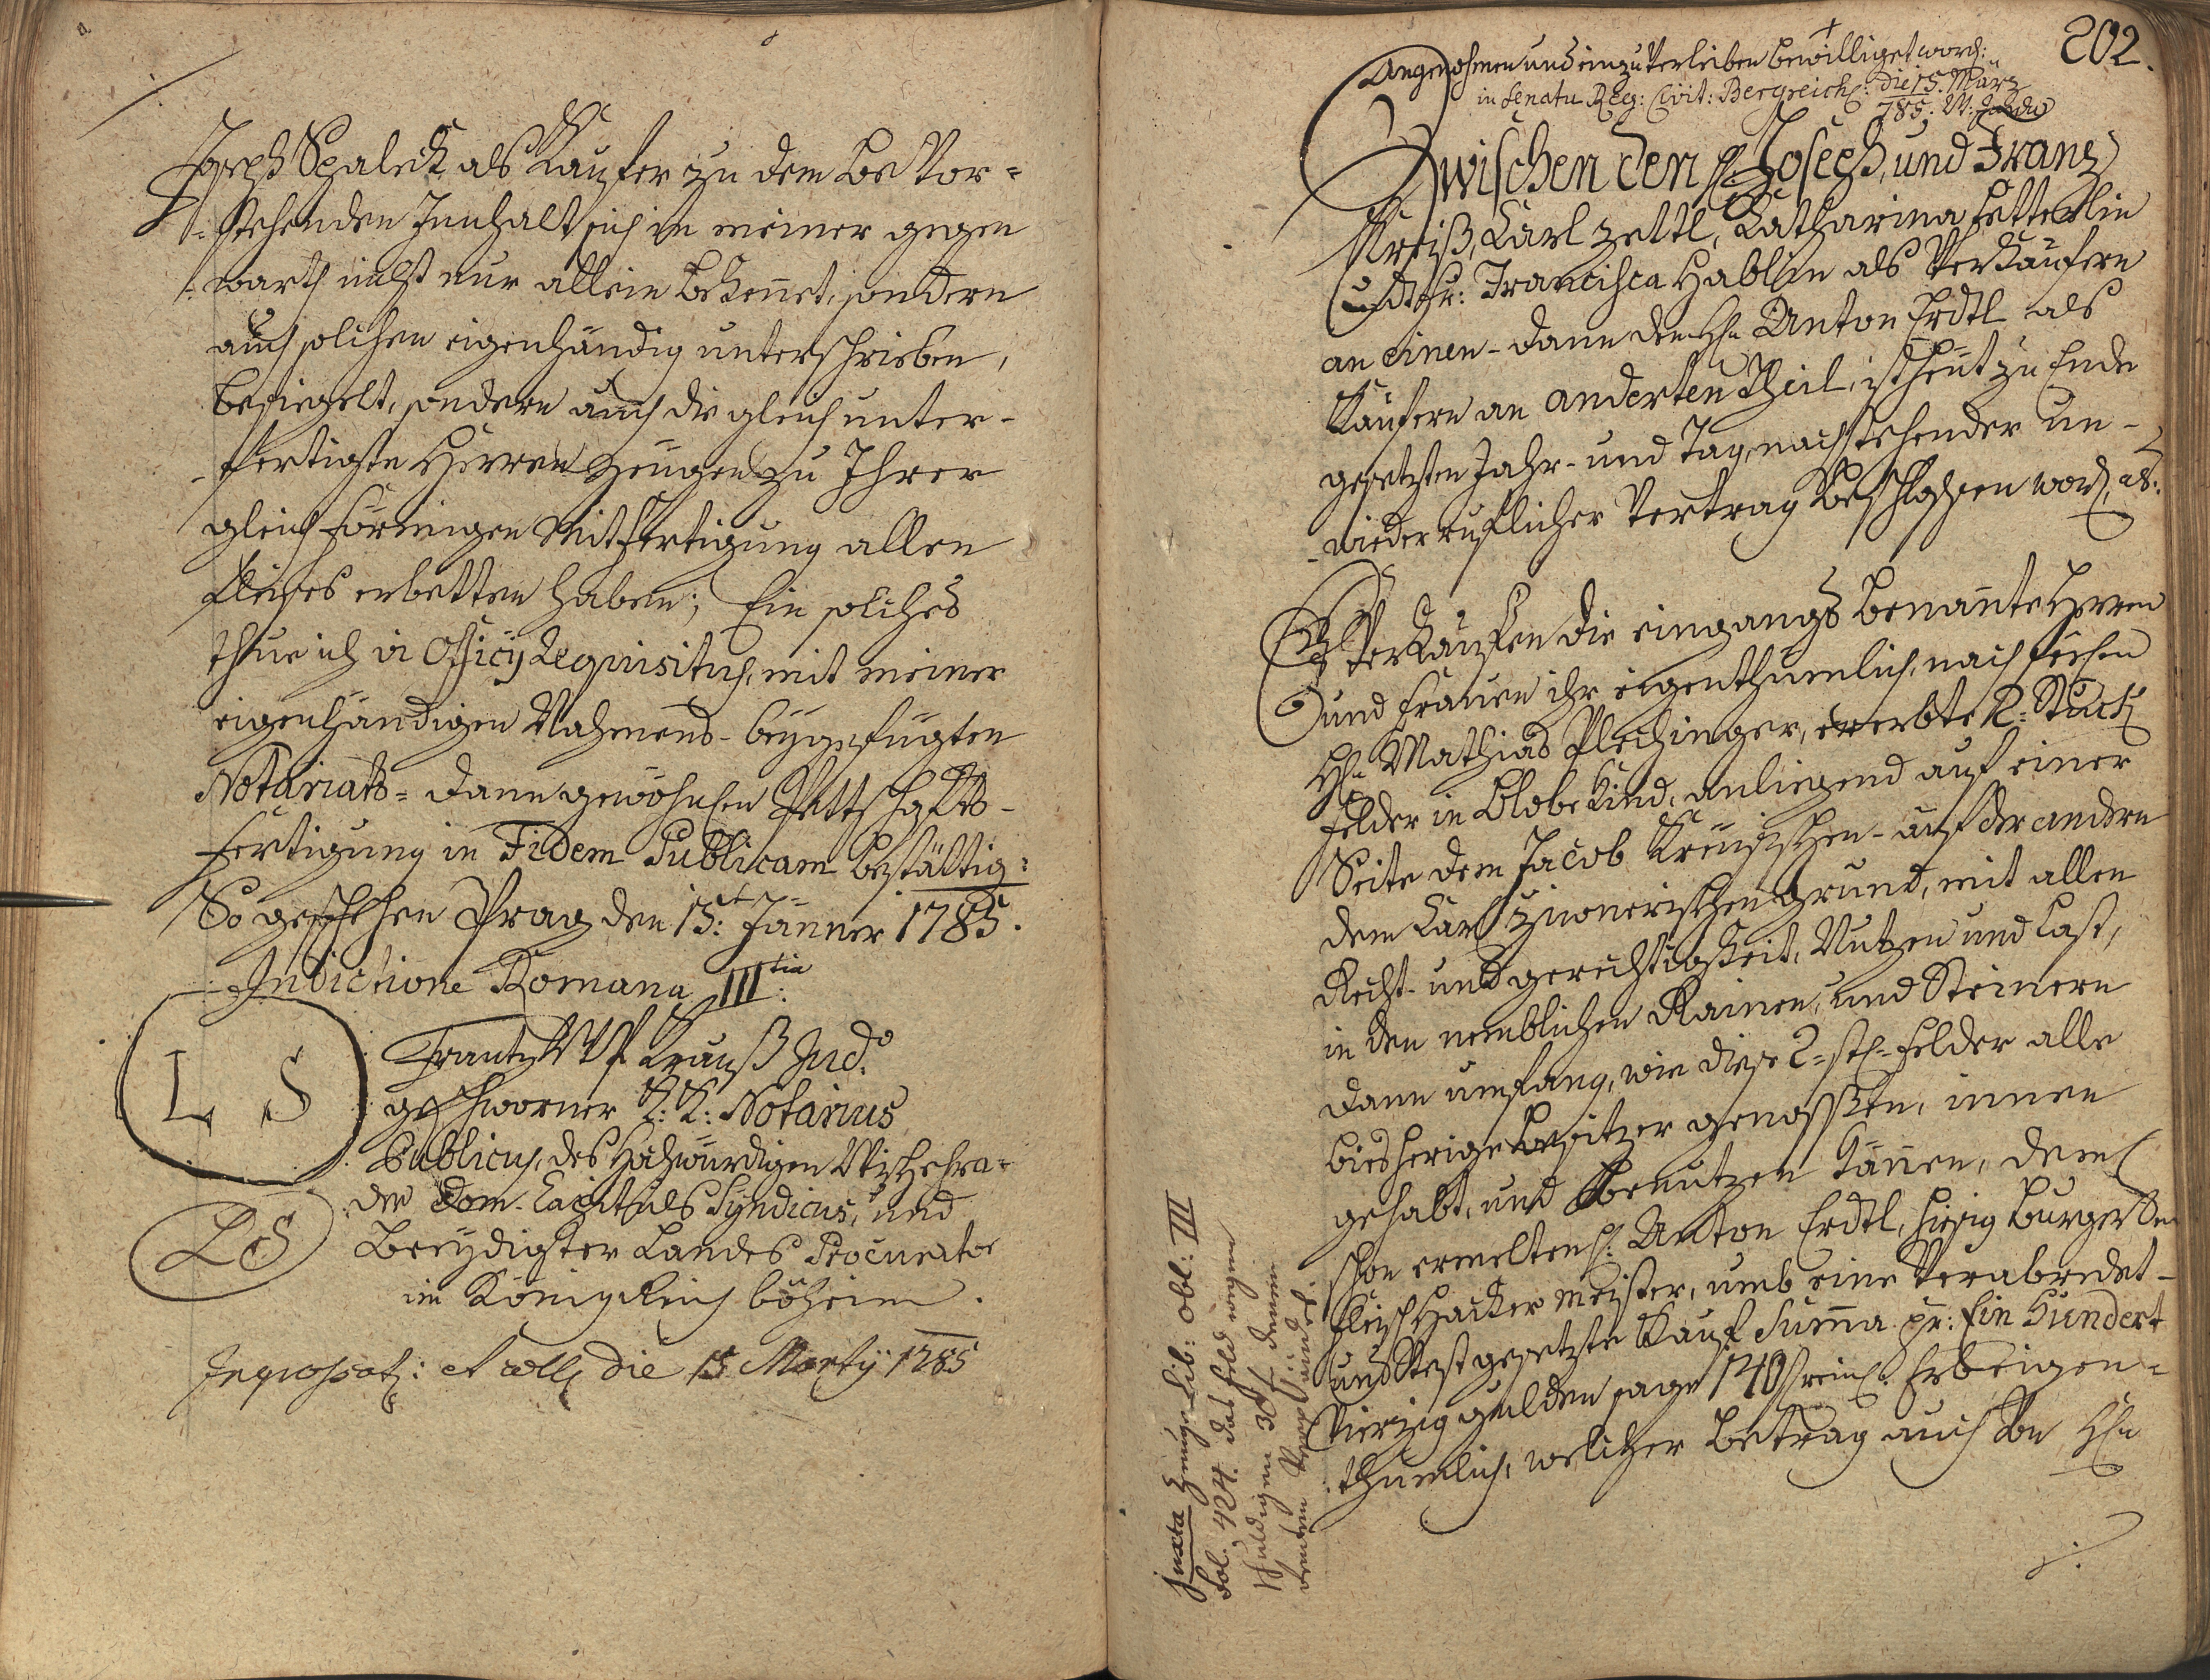 Joseph Spaleck als Kaufer zu dem bevor=
=stehenden Innhalt sich in meiner gegen
warth nicht nur allein bekennet, sondern
auch solchen eigenhändig unterschrieben,
besiegelt, sondern auch die gleich unter-
-fertigte Herren Zeugen zu Ihrer
gleichförmigen Mitfertigung allen
Fleises erbetten haben; Ein solches
thue ich vi Officij Requisitus, mit meiner
eigenhändigen Nahmens- beygefügten
Notariats= dann gewöhnlichen Pettschafts-
fertigung in Fidem Publicam bestättig:
So geschehen Prag den 15t: Jänner 1785.
Indictione Romana III tia:
L S
Frantz Krauß
geschworner K: K: Notarius
Publicus, des Hochwürdigen Wischehra-
der Dom-Capituls Syndicus, und
L S
Beeydigter Landes Procurator
im Königreich böheim.
die 15 Martij 1785
202.
Angenohmen und einzuverleiben bewilliget word:
in Senatu Reg: Civit: Bergreich: die 15. März
785:
Zwischen den H: Joseph, und Franz
Kreiß, Karl Zettl, Katharina
und Fr: Francisca Hablin als Verkaufern
an einen- dann den Hn Anton Erdtl als
Kaufern an anderten Theil, ist heut zu Ende
gesetzten Jahr- und Tag nachstehender un-
-wiederruflicher Vertrag beschlossen word, als:
Verkaufen die eingangs benannte Herren
und Frauen ihr eigenthumlich, nach
Hn Mathias Plechinger, ererbte 2= Stuck
Felder in anliegend auf einer
Seite dem Jacob auf der andern
dem Karl Grund, mit allen
Recht- und gerechtigkeit, Nutzen und Last,
in den nemblichen Rainen, und Steinern
dann umfang, wie diese 2= stk= Felder alle
biesherige Besitzer genossen, innen
gehabt, und benutzen können, dem
schon ermelten H: Anton Erdtl, hiesig Burger
Fleischhacker Meister, umb eine Verabredet-
und Vest gesetzte Kauf Summa pr: Ein Hundert
Vierzig gulden sage 140 f rein: Erbeigen-
thumlich, welcher Betrag auch von Hn
juxta Lib: Obl: III
Fol. 424. das Feld wegen
schuldigen 30 f